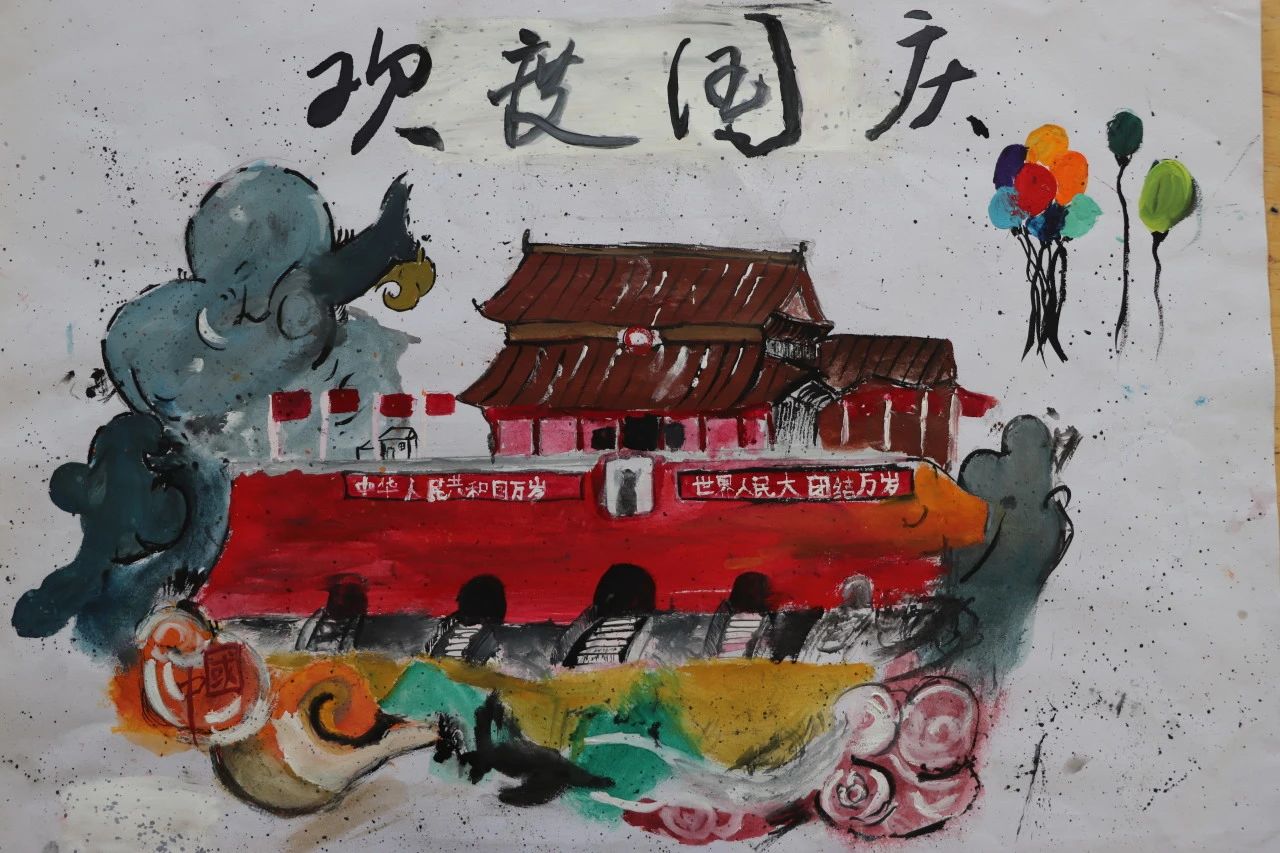 欢度国庆
中华人民共和国万岁
世界人民大团结万岁
中國